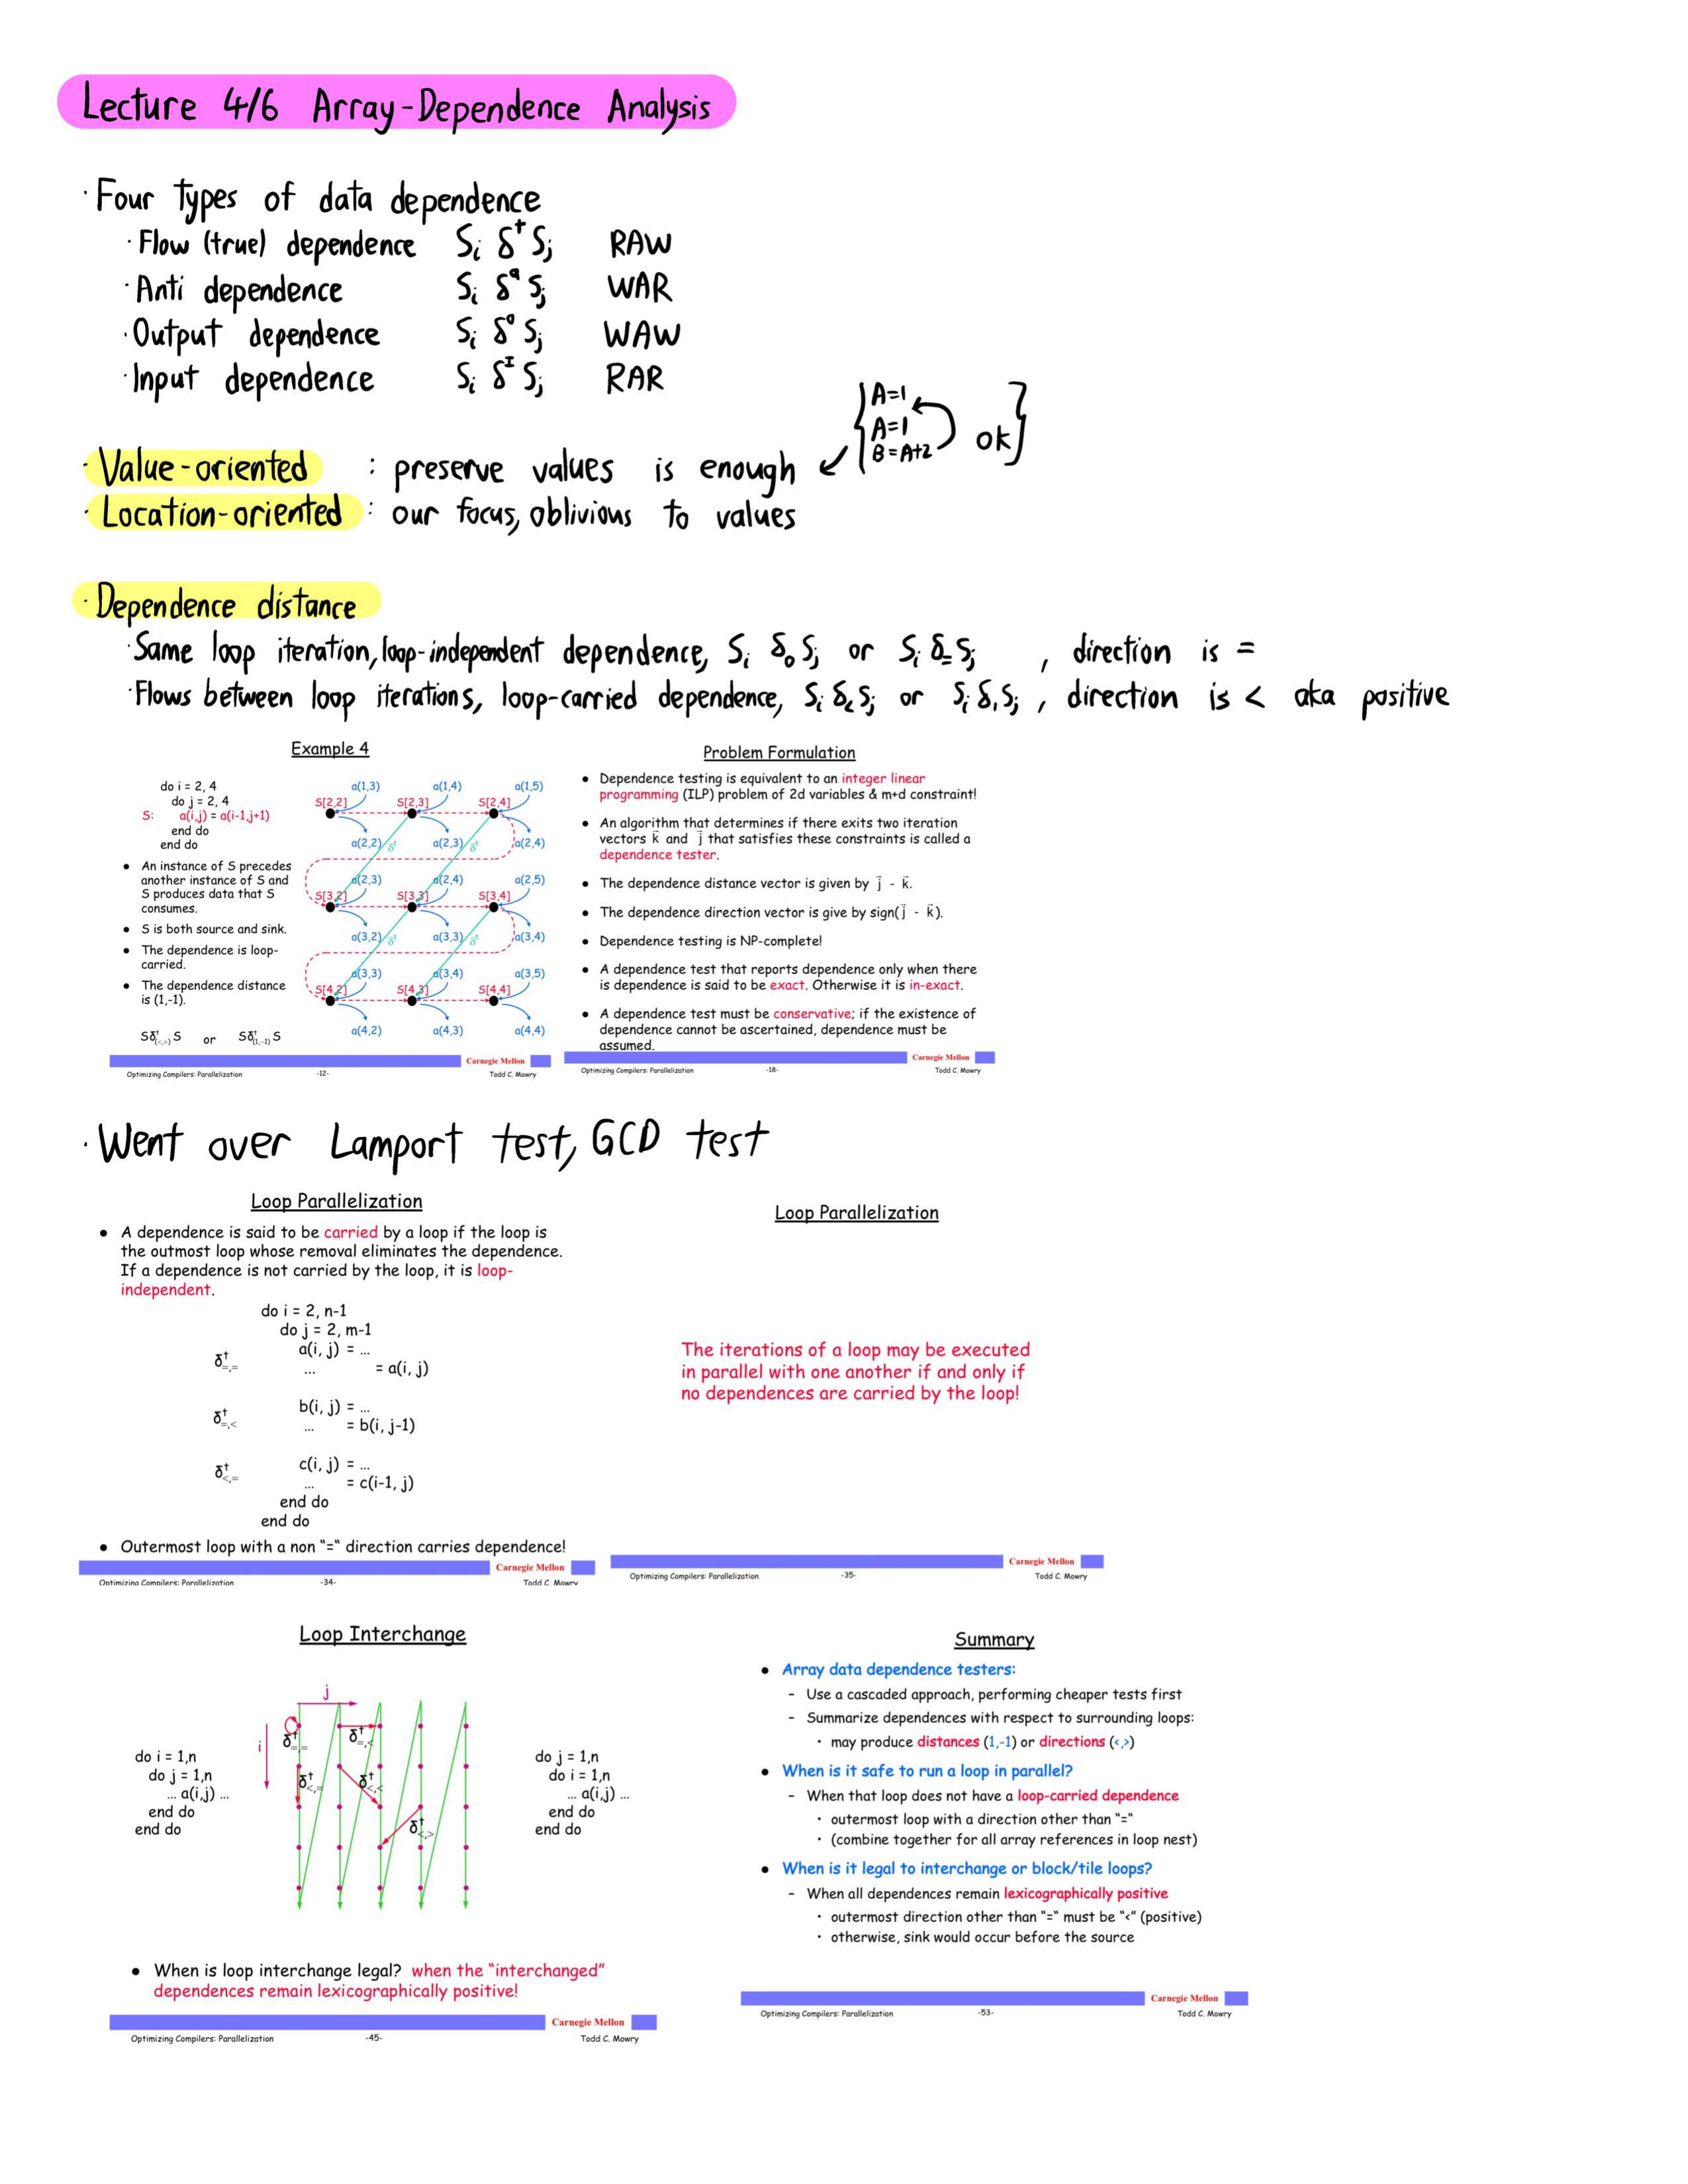 Lecture 4/6 Array-Dependence Analysis
· Four types of data dependence
· Flow (true) dependence Sᵢ δᵗ Sⱼ RAW
· Anti dependence Sᵢ δᵃ Sⱼ WAR
· Output dependence Sᵢ δᵒ Sⱼ WAW
· Input dependence Sᵢ δᴵ Sⱼ RAR
{ A=1
A=1
B=A+2 ok}
· Value-oriented : preserve values is enough
· Location-oriented : our focus, oblivious to values
· Dependence distance
· Same loop iteration, loop-independent dependence, Sᵢ δ₀ Sⱼ or Sᵢ δ₌ Sⱼ , direction is =
· Flows between loop iterations, loop-carried dependence, Sᵢ δ< Sⱼ or Sᵢ δ₁ Sⱼ , direction is < aka positive
Example 4
do i = 2, 4
do j = 2, 4
S: a(i,j) = a(i-1,j+1)
end do
end do
● An instance of S precedes
another instance of S and
S produces data that S
consumes.
● S is both source and sink.
● The dependence is loop-
carried.
● The dependence distance
is (1,-1).
Sδᵗ(<,>) S or Sδᵗ(1,-1) S
a(1,3) a(1,4) a(1,5)
S[2,2] S[2,3] S[2,4]
a(2,2) δᵗ a(2,3) δᵗ a(2,4)
a(2,3) a(2,4) a(2,5)
S[3,2] S[3,3] S[3,4]
a(3,2) δᵗ a(3,3) δᵗ a(3,4)
a(3,3) a(3,4) a(3,5)
S[4,2] S[4,3] S[4,4]
a(4,2) a(4,3) a(4,4)
Carnegie Mellon
Optimizing Compilers: Parallelization -12- Todd C. Mowry
Problem Formulation
● Dependence testing is equivalent to an integer linear
programming (ILP) problem of 2d variables & m+d constraint!
● An algorithm that determines if there exits two iteration
vectors k⃗ and j⃗ that satisfies these constraints is called a
dependence tester.
● The dependence distance vector is given by j⃗ - k⃗.
● The dependence direction vector is give by sign(j⃗ - k⃗).
● Dependence testing is NP-complete!
● A dependence test that reports dependence only when there
is dependence is said to be exact. Otherwise it is in-exact.
● A dependence test must be conservative; if the existence of
dependence cannot be ascertained, dependence must be
assumed.
Carnegie Mellon
Optimizing Compilers: Parallelization -18- Todd C. Mowry
· Went over Lamport test, GCD test
Loop Parallelization
● A dependence is said to be carried by a loop if the loop is
the outmost loop whose removal eliminates the dependence.
If a dependence is not carried by the loop, it is loop-
independent.
do i = 2, n-1
do j = 2, m-1
δᵗ=,= a(i, j) = ...
... = a(i, j)
δᵗ=,< b(i, j) = ...
... = b(i, j-1)
δᵗ<,= c(i, j) = ...
... = c(i-1, j)
end do
end do
● Outermost loop with a non “=“ direction carries dependence!
Carnegie Mellon
Optimizing Compilers: Parallelization -34- Todd C. Mowry
Loop Parallelization
The iterations of a loop may be executed
in parallel with one another if and only if
no dependences are carried by the loop!
Carnegie Mellon
Optimizing Compilers: Parallelization -35- Todd C. Mowry
Loop Interchange
do i = 1,n
do j = 1,n
... a(i,j) ...
end do
end do
j
i
δᵗ=,= δᵗ=,<
δᵗ<,= δᵗ<,<
δᵗ<,>
do j = 1,n
do i = 1,n
... a(i,j) ...
end do
end do
● When is loop interchange legal? when the “interchanged”
dependences remain lexicographically positive!
Carnegie Mellon
Optimizing Compilers: Parallelization -45- Todd C. Mowry
Summary
● Array data dependence testers:
– Use a cascaded approach, performing cheaper tests first
– Summarize dependences with respect to surrounding loops:
· may produce distances (1,-1) or directions (<,>)
● When is it safe to run a loop in parallel?
– When that loop does not have a loop-carried dependence
· outermost loop with a direction other than “=“
· (combine together for all array references in loop nest)
● When is it legal to interchange or block/tile loops?
– When all dependences remain lexicographically positive
· outermost direction other than “=“ must be “<” (positive)
· otherwise, sink would occur before the source
Carnegie Mellon
Optimizing Compilers: Parallelization -53- Todd C. Mowry